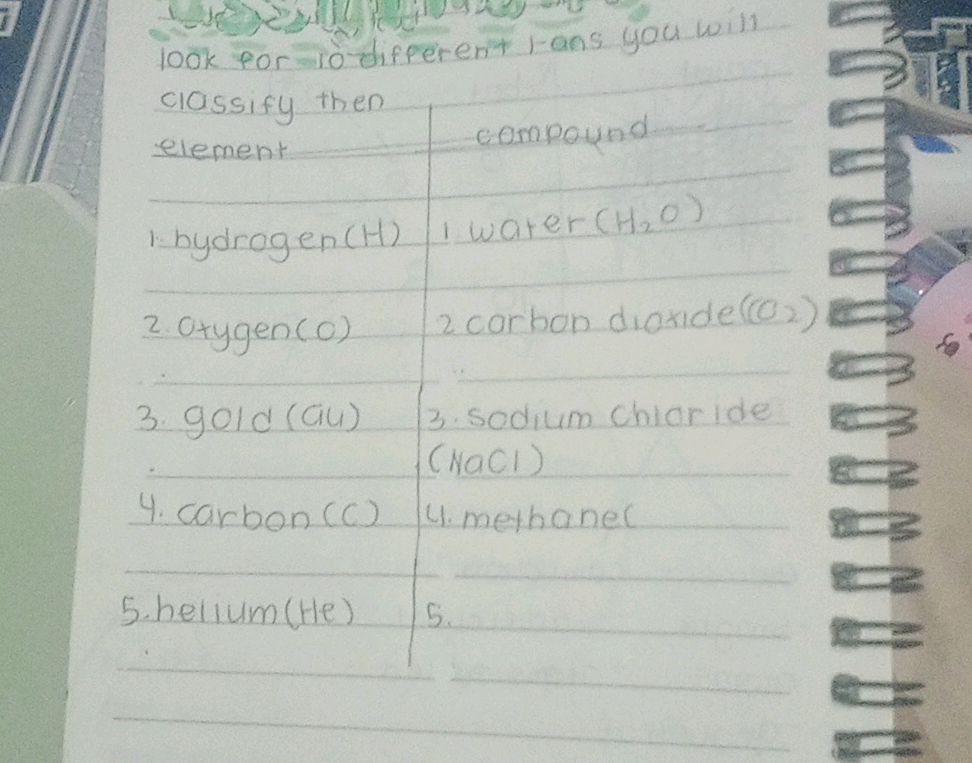 look for 10 different I-ans you will
classify then
element compound
1. hydrogen(H) 1 water(H₂O)
2. Oxygen(O) 2 carbon dioxide(CO₂)
3. gold(au) 3. sodium chloride
(NaCl)
4. carbon(C) 4. methane(
5. helium(He) 5.